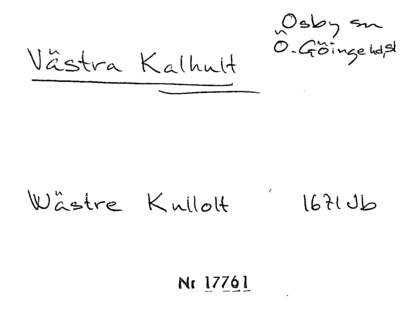 Osby sn
Västra Kalhult Ö-Göinge hd, sk
Wästre Kullolt 1671 Jb
Nr 17761